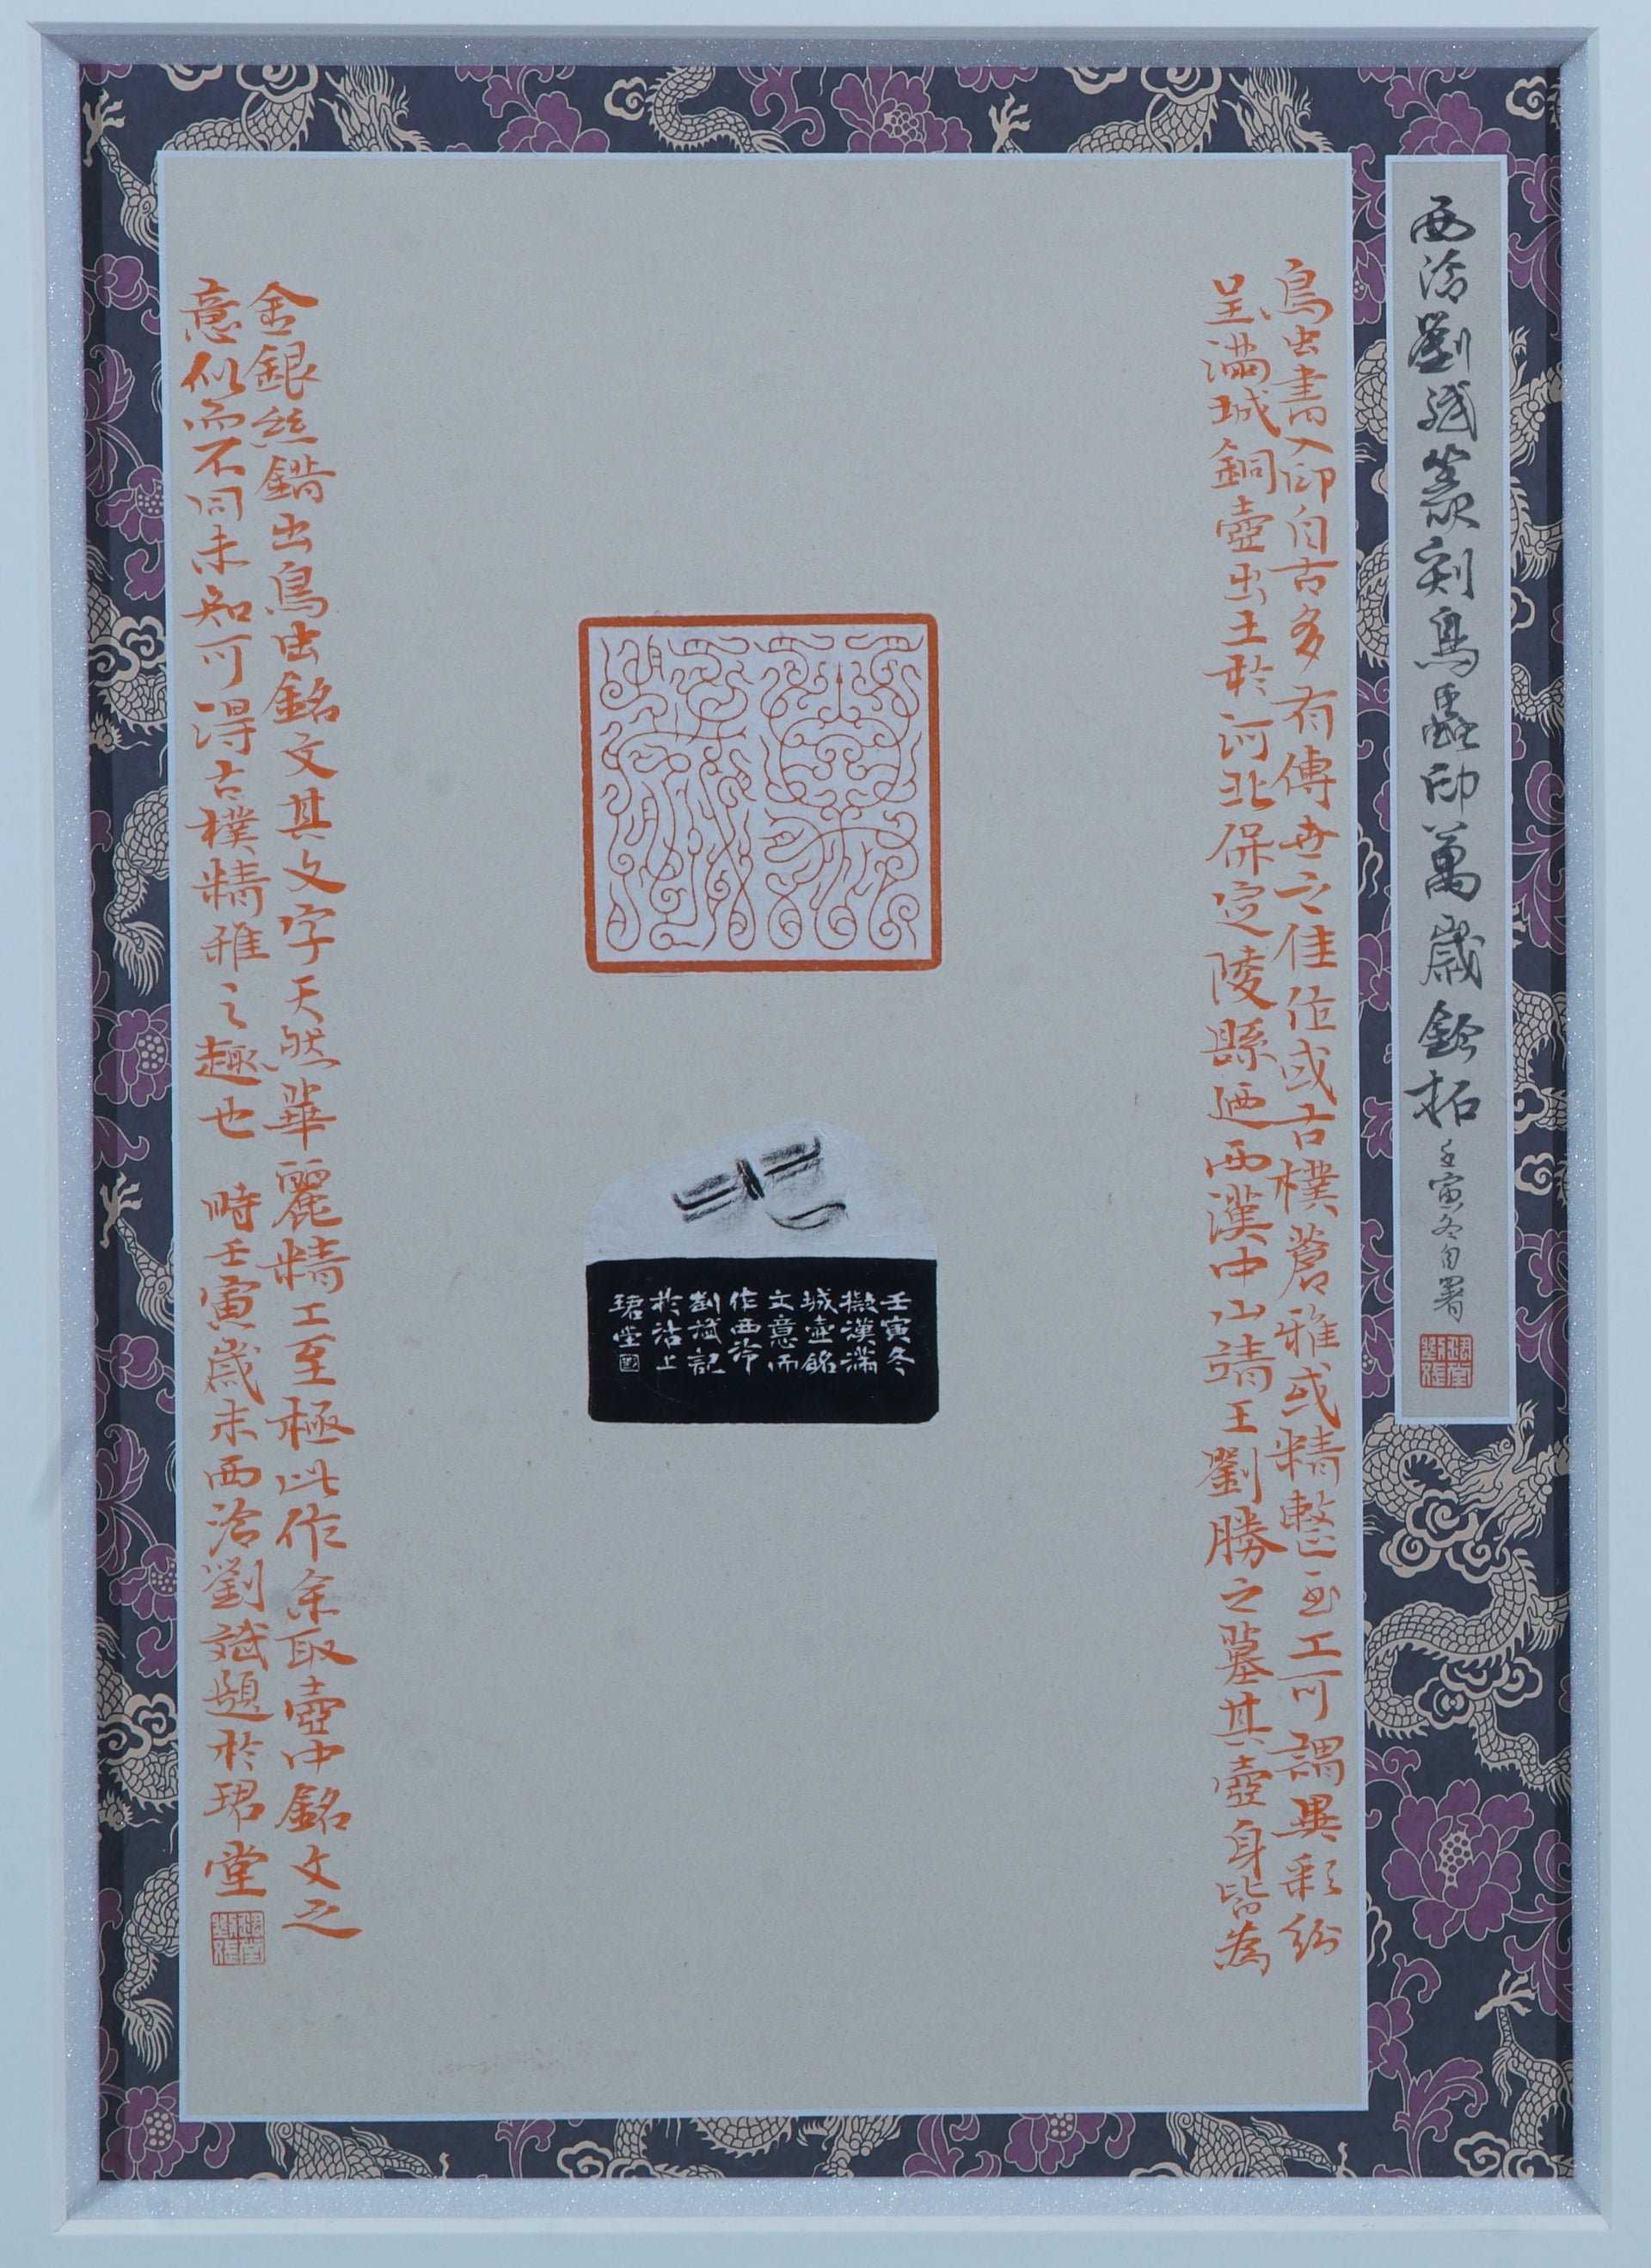 西泠劉斌篆刻鳥蟲印萬歲鈐拓
壬寅冬自署
鳥虫書入印自古多有傳世之佳作或古樸蒼雅或精整至工可謂異彩紛
呈滿城銅壺出土於河北保定陵縣廼西漢中山靖王劉勝之墓其壺身皆為
萬歲
壬寅冬
擬漢滿
城壺銘
文意而
作西泠
劉斌記
於沽上
珺堂
金銀絲錯出鳥虫銘文其文字天然華麗精工至極此作余取壺中銘文之
意似而不同未知可得古樸精雅之趣也 時壬寅歲末西泠劉斌題於珺堂